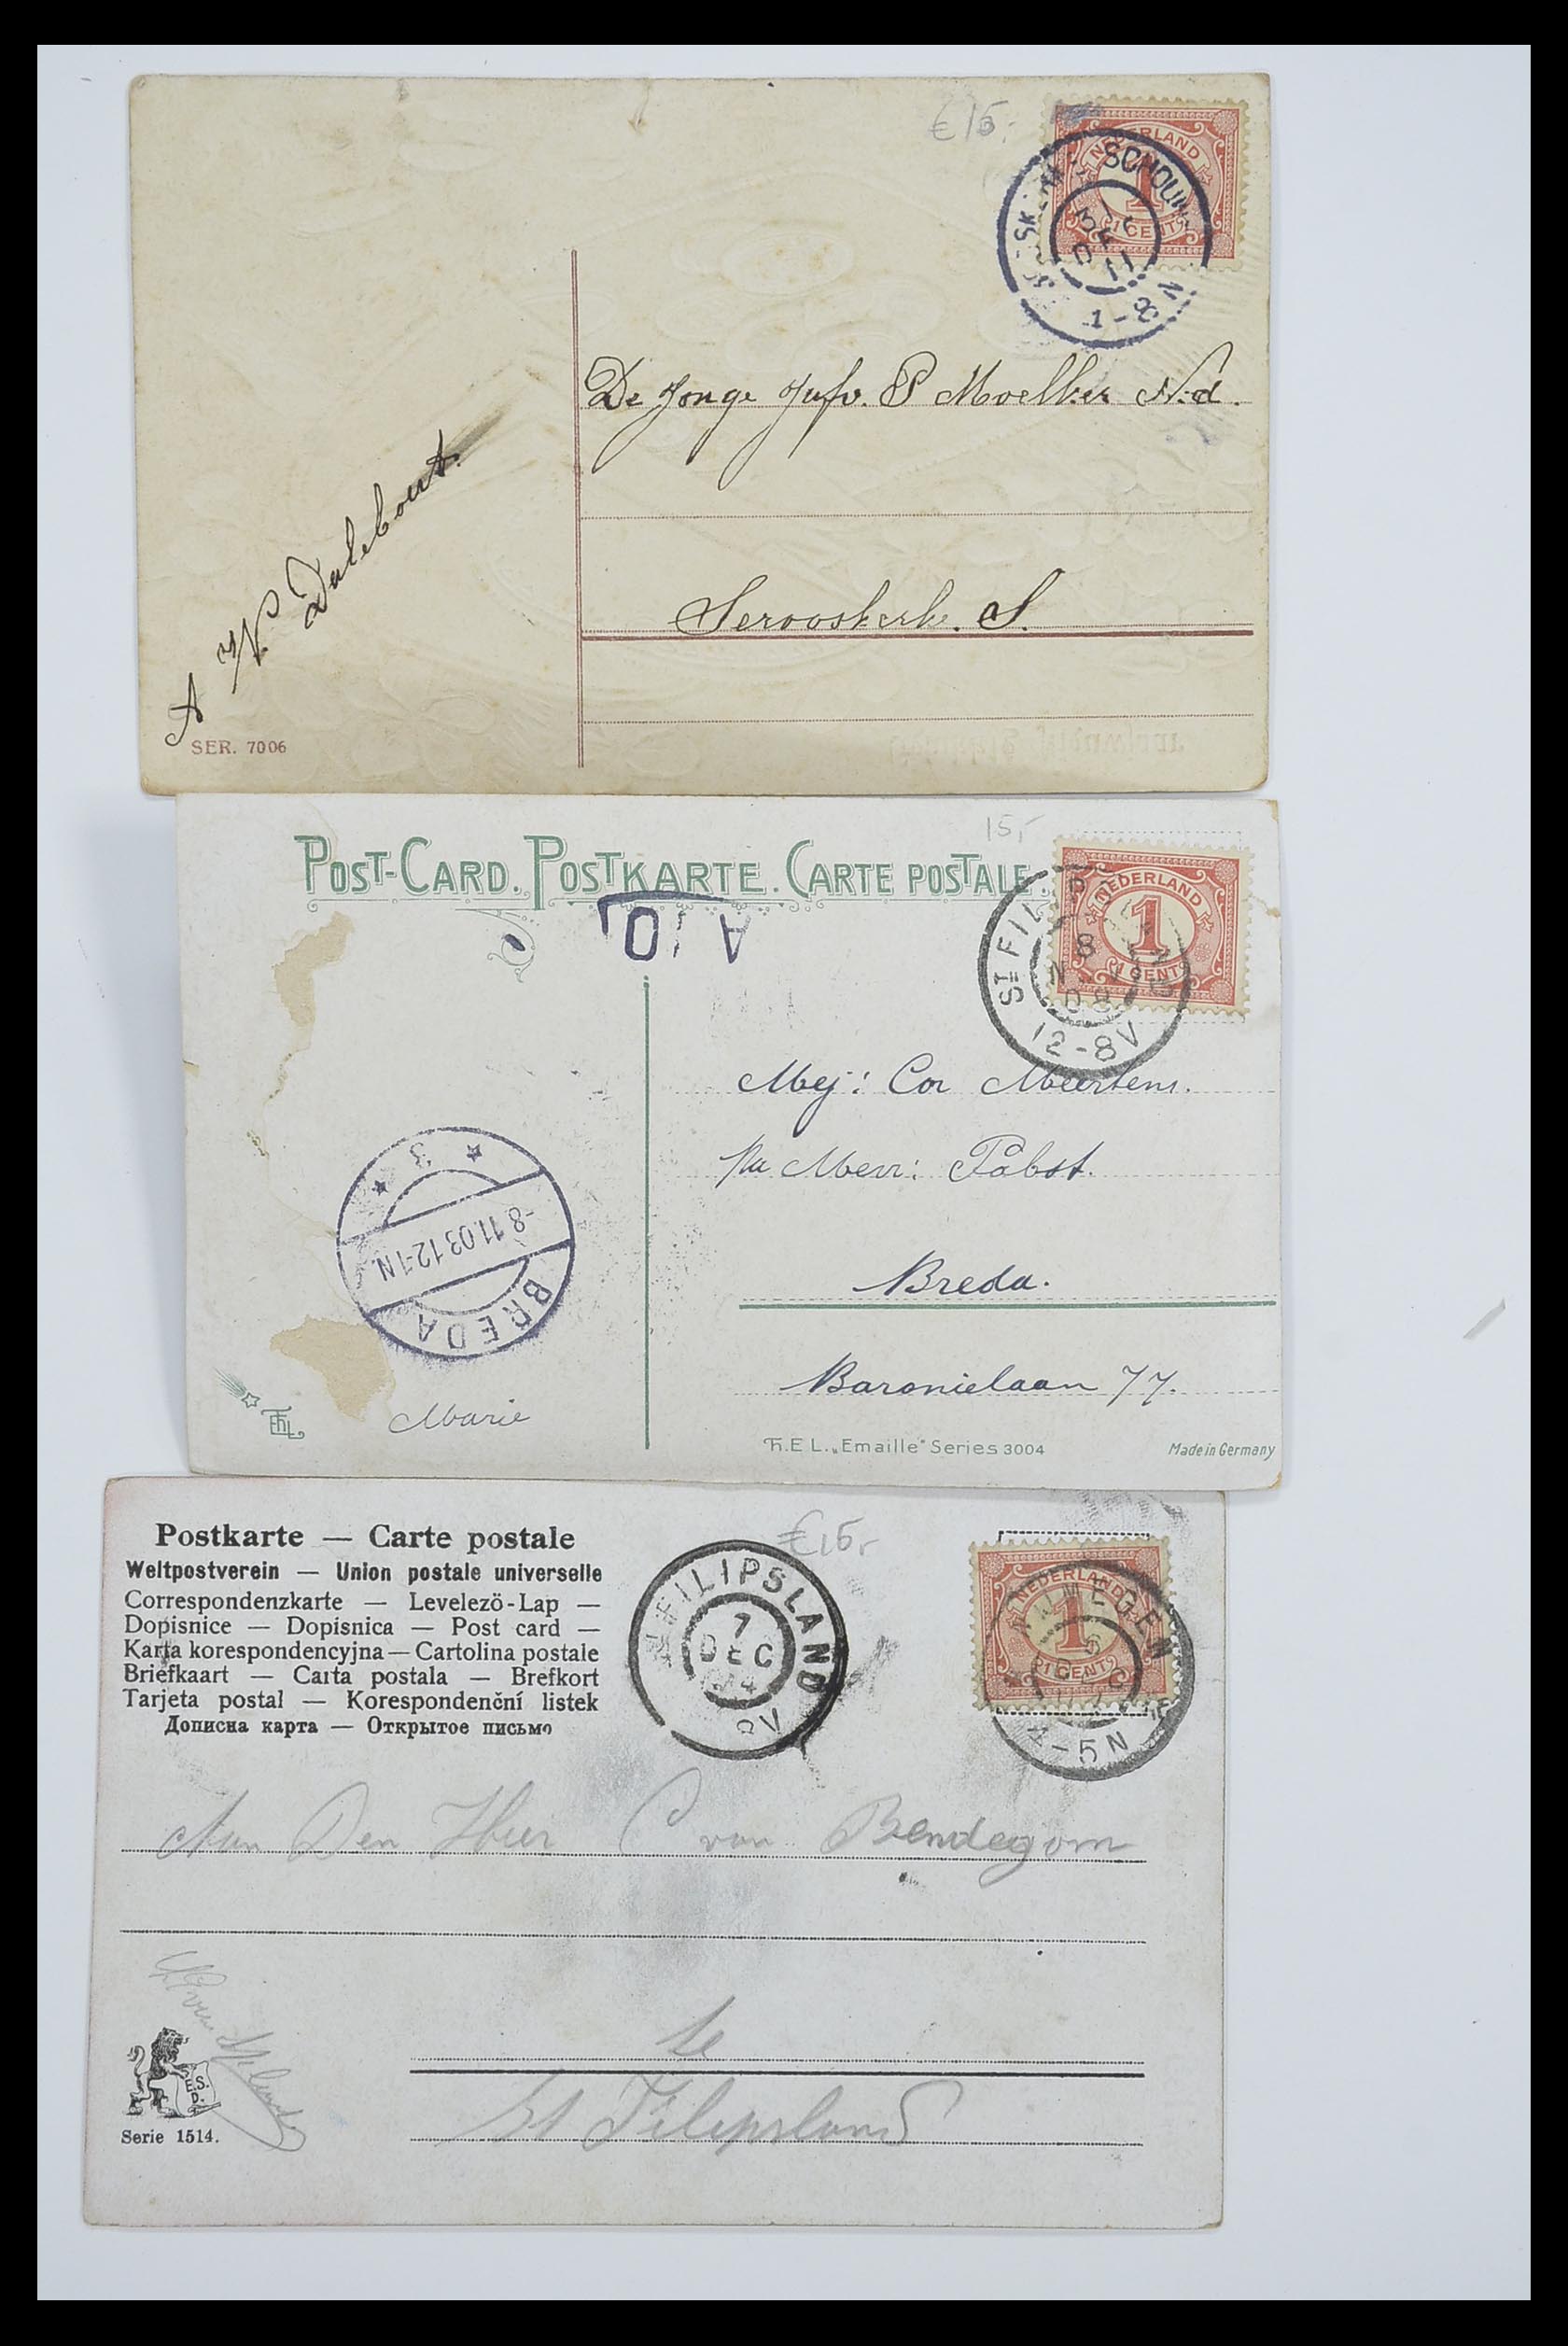 € 15,-
NEDERLAND
1
1 CENT
SCHOUW
31
DE
11
1-8 N
De Jonge Jufv. P Moelker N.d.
A W Dalebout.
Serooskerk. S.
SER. 7006
15,-
POST-CARD. POSTKARTE. CARTE POSTALE.
NEDERLAND
1
1 CENT
ST FILIP
8
12-8V
Mej: Cor Meertens.
p/a Mevr: Pabst.
3
-8.11.03 12-1N
BREDA
Breda.
Baronielaan 77.
Marie
Th.E.L. „Emaille" Series 3004
Made in Germany
€ 15,-
Postkarte — Carte postale
Weltpostverein — Union postale universelle
Correspondenzkarte — Levelezö-Lap —
Dopisnice — Dopisnica — Post card —
Karta korespondencyjna — Cartolina postale
Briefkaart — Carta postala — Brefkort
Tarjeta postal — Korespondenční listek
Дописна карта — Открытое письмо
FILIPSLAND
7
DEC
04
NEDERLAND
1
1 CENT
NIJMEGEN
4-5N
Aan Den Heer C van Bendegom
te
St Filipsland
E.S.
D.
Serie 1514.